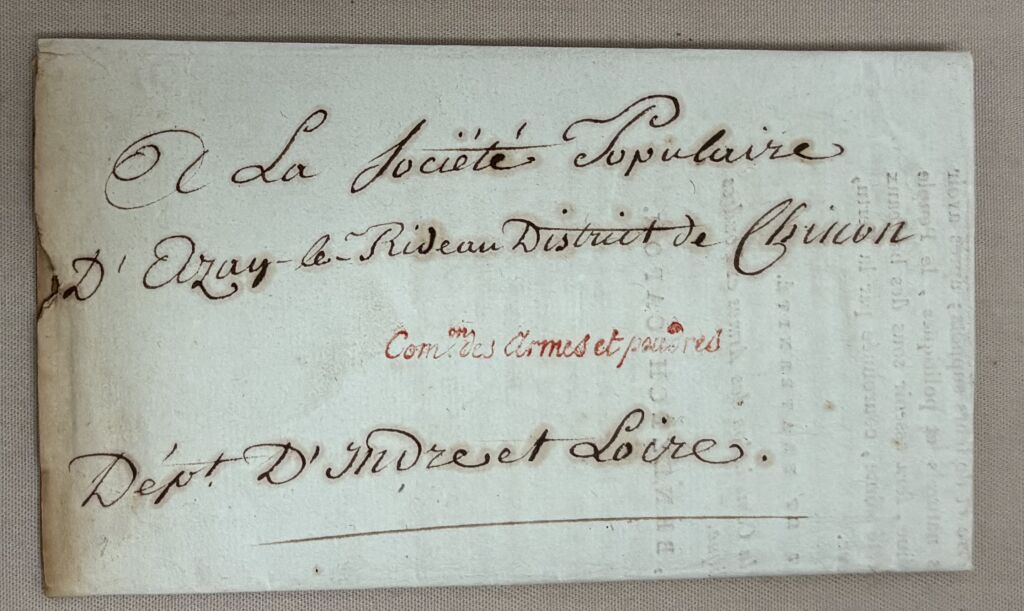 A La Société Populaire
D' Azay-le-Rideau District de Chinon
Com.on des Armes et poudres
Dépt. D'Indre et Loire.